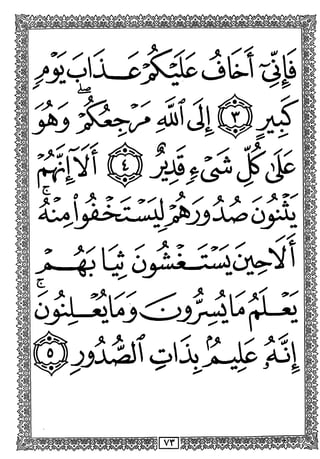 فَإِنِّىٓ أَخَافُ عَلَيْكُمْ عَذَابَ يَوْمٍ
كَبِيرٍ ٣ إِلَى ٱللَّهِ مَرْجِعُكُمْۖ وَهُوَ
عَلَىٰ كُلِّ شَىْءٍ قَدِيرٌ ٤ أَلَآ إِنَّهُمْ
يَثْنُونَ صُدُورَهُمْ لِيَسْتَخْفُوا۟ مِنْهُۚ
أَلَا حِينَ يَسْتَغْشُونَ ثِيَابَهُمْ
يَعْلَمُ مَا يُسِرُّونَ وَمَا يُعْلِنُونَۚ
إِنَّهُۥ عَلِيمٌۢ بِذَاتِ ٱلصُّدُورِ ٥
٧٣